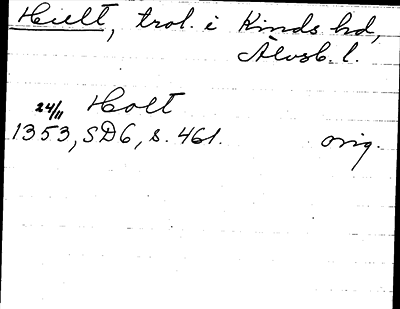 Hult, trol. i Kinds hd,
Älvsb. l.
24/11 Holt
1353, SD6, s. 461. orig.